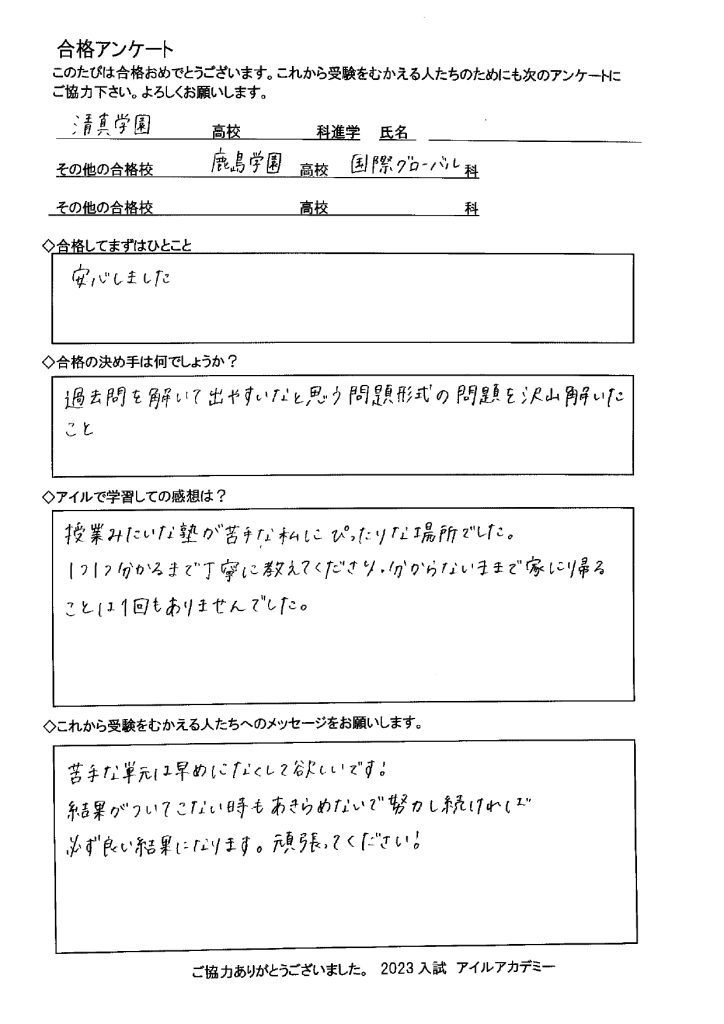 合格アンケート
このたびは合格おめでとうございます。これから受験をむかえる人たちのためにも次のアンケートに
ご協力下さい。よろしくお願いします。
清真学園 高校 科進学 氏名
その他の合格校 鹿島学園 高校 国際グローバル 科
その他の合格校 高校 科
◇合格してまずはひとこと
安心しました
◇合格の決め手は何でしょうか？
過去問を解いて出やすいなと思う問題形式の問題を沢山解いた
こと
◇アイルで学習しての感想は？
授業みたいな塾が苦手な私にぴったりな場所でした。
1つ1つ分かるまで丁寧に教えてくださり、分からないままで家に帰る
ことは1回もありませんでした。
◇これから受験をむかえる人たちへのメッセージをお願いします。
苦手な単元は早めになくして欲しいです!
結果がついてこない時もあきらめないで努力し続ければ
必ず良い結果になります。頑張ってください!
ご協力ありがとうございました。 2023入試 アイルアカデミー